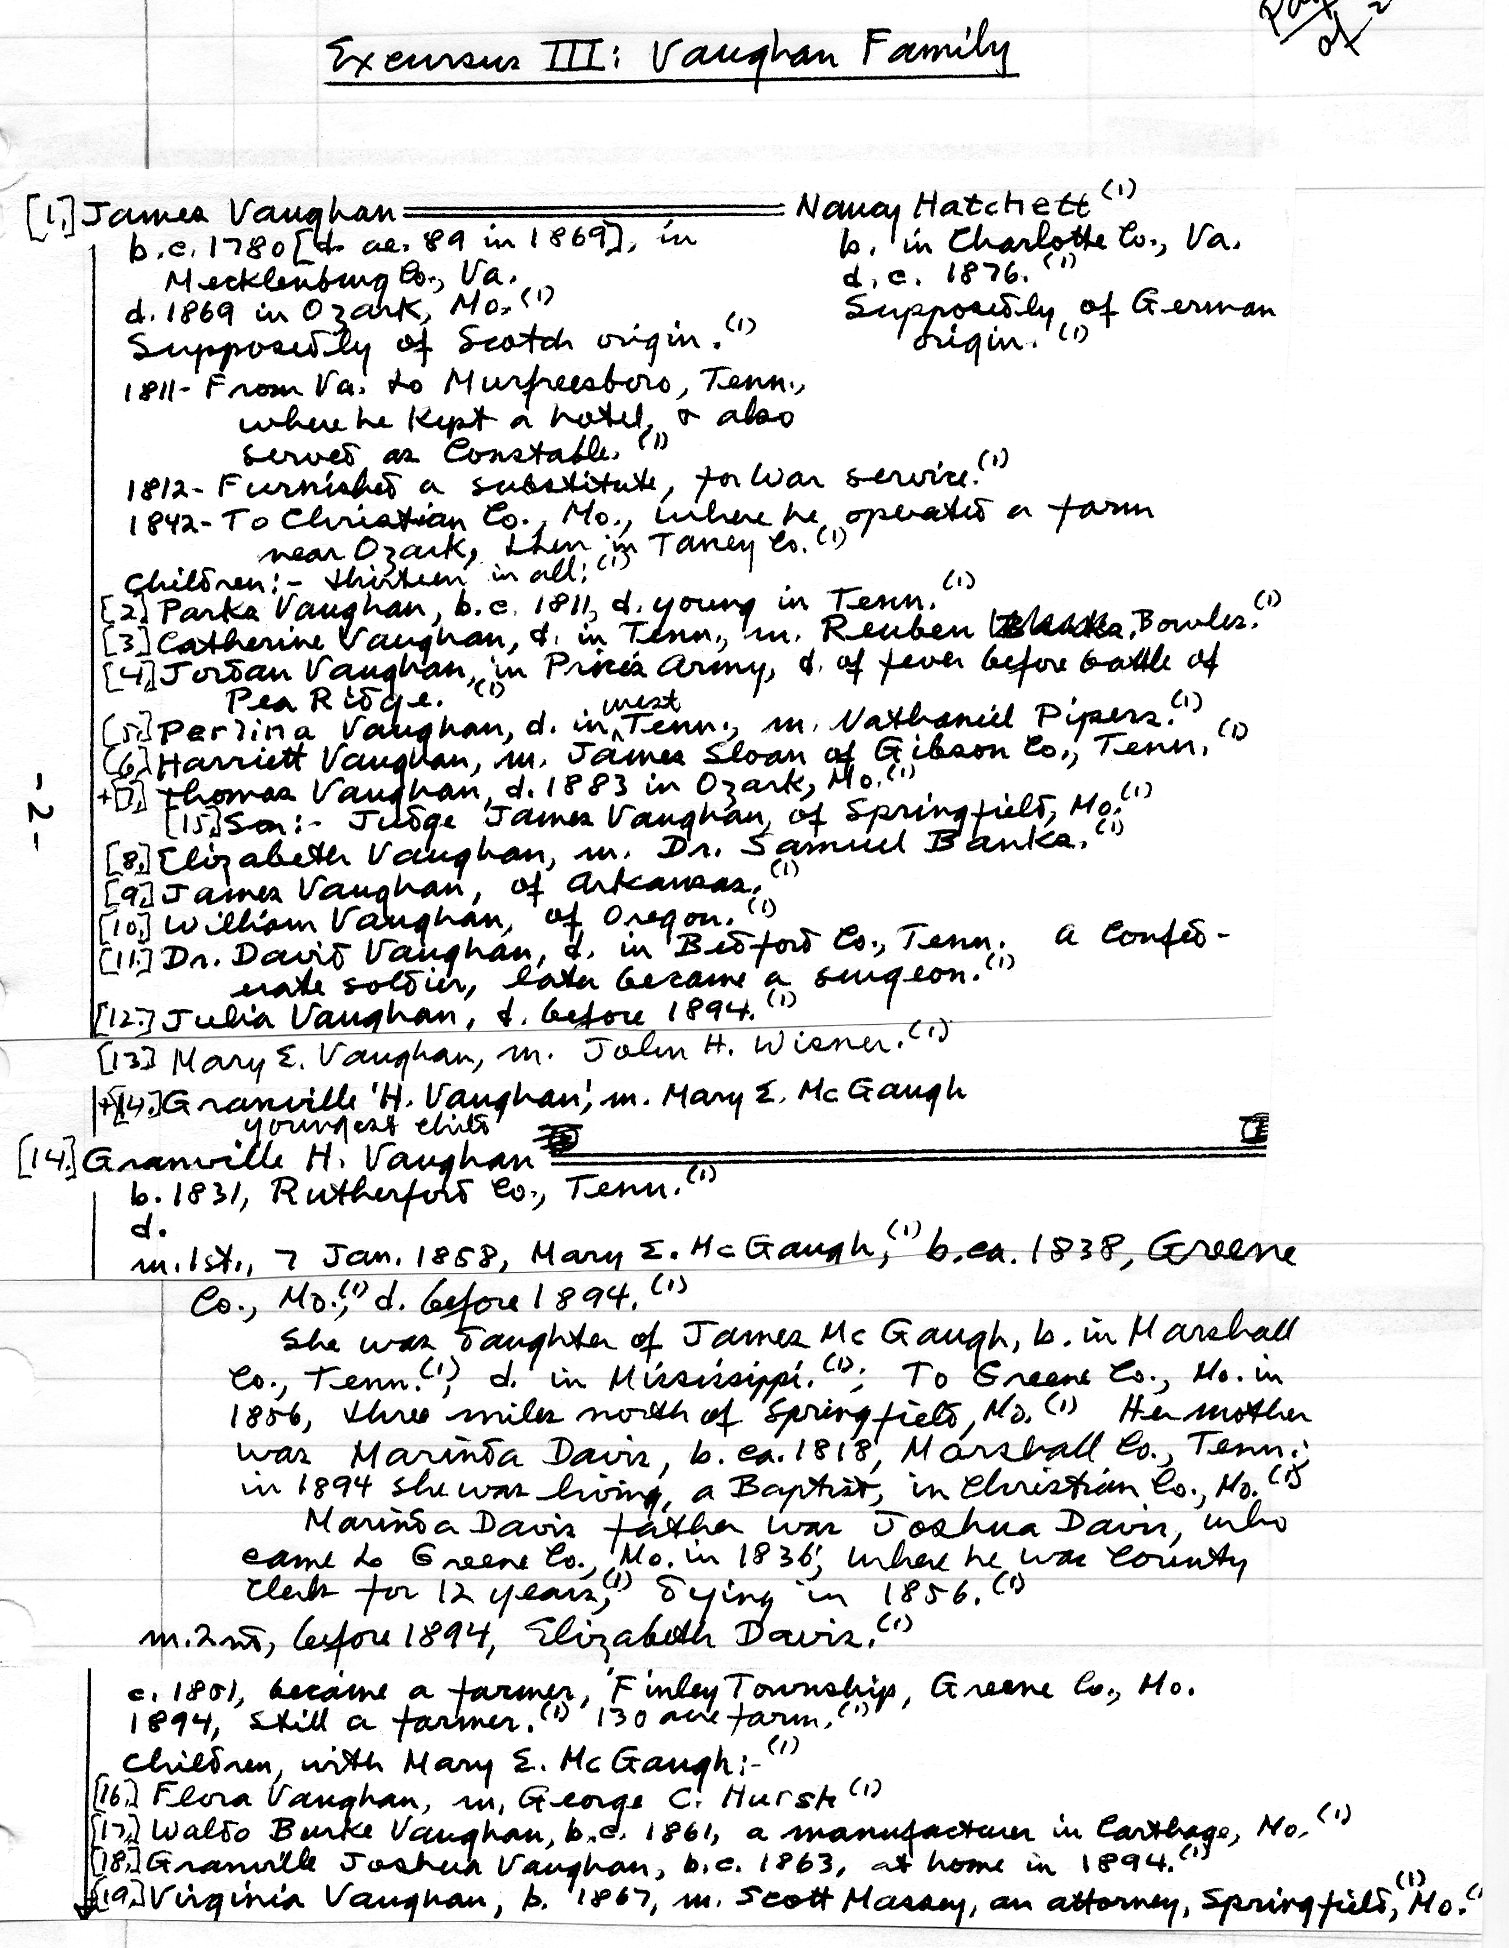 Page
of 2
Excursus III: Vaughan Family
[1.] James Vaughan ═══ Nancy Hatchett (1)
b.c. 1780 [d. ae. 89 in 1869], in
Mecklenburg Co., Va.
d. 1869 in Ozark, Mo. (1)
Supposedly of Scotch origin. (1)
b. in Charlotte Co., Va.
d. c. 1876. (1)
Supposedly of German
origin. (1)
1811- From Va. to Murfreesboro, Tenn.,
where he kept a hotel, & also
served as Constable. (1)
1812- Furnished a substitute, for War service. (1)
1842- To Christian Co., Mo., where he operated a farm
near Ozark, then in Taney Co. (1)
Children:- thirteen in all: (1)
[2.] Parks Vaughan, b.c. 1811, d. young in Tenn. (1)
[3.] Catherine Vaughan, d. in Tenn., m. Reuben Bowles. (1)
[4.] Jordan Vaughan, in Price's Army, d. of fever before battle of
Pea Ridge. (1)
[5.] Perlina Vaughan, d. in west Tenn., m. Nathaniel Pipers. (1)
[6.] Harriett Vaughan, m. James Sloan of Gibson Co., Tenn. (1)
+[7.] Thomas Vaughan, d. 1883 in Ozark, Mo. (1)
[15.] Son:- Judge James Vaughan, of Springfield, Mo. (1)
[8.] Elizabeth Vaughan, m. Dr. Samuel Banks. (1)
[9.] James Vaughan, of Arkansas. (1)
[10.] William Vaughan, of Oregon. (1)
[11.] Dr. David Vaughan, d. in Bedford Co., Tenn. A Confed-
erate soldier, later became a surgeon. (1)
[12.] Julia Vaughan, d. before 1894. (1)
[13.] Mary E. Vaughan, m. John H. Wisner. (1)
+[14.] Granville H. Vaughan, m. Mary E. McGaugh
youngest child
[14.] Granville H. Vaughan
b. 1831, Rutherford Co., Tenn. (1)
d.
m. 1st., 7 Jan. 1858, Mary E. McGaugh, (1) b. ca. 1838, Greene
Co., Mo., (1) d. before 1894. (1)
She was daughter of James McGaugh, b. in Marshall
Co., Tenn. (1), d. in Mississippi. (1); To Greene Co., Mo. in
1856, three miles north of Springfield, Mo. (1) Her mother
was Marinda Davis, b. ca. 1818, Marshall Co., Tenn.;
in 1894 she was living, a Baptist, in Christian Co., Mo. (1)
Marinda Davis father was Joshua Davis, who
came to Greene Co., Mo. in 1836, where he was County
Clerk for 12 years, (1) dying in 1856. (1)
m. 2nd, before 1894, Elizabeth Davis. (1)
c. 1851, became a farmer, Finley Township, Greene Co., Mo.
1894, still a farmer. (1) 130 acre farm. (1)
Children, with Mary E. McGaugh:- (1)
[16.] Flora Vaughan, m. George C. Hursh (1)
[17.] Waldo Burke Vaughan, b.c. 1861, a manufacturer in Carthage, Mo. (1)
[18.] Granville Joshua Vaughan, b.c. 1863, at home in 1894. (1)
[19.] Virginia Vaughan, b. 1867, m. Scott Massey, an attorney, Springfield, (1) Mo. (
-2-